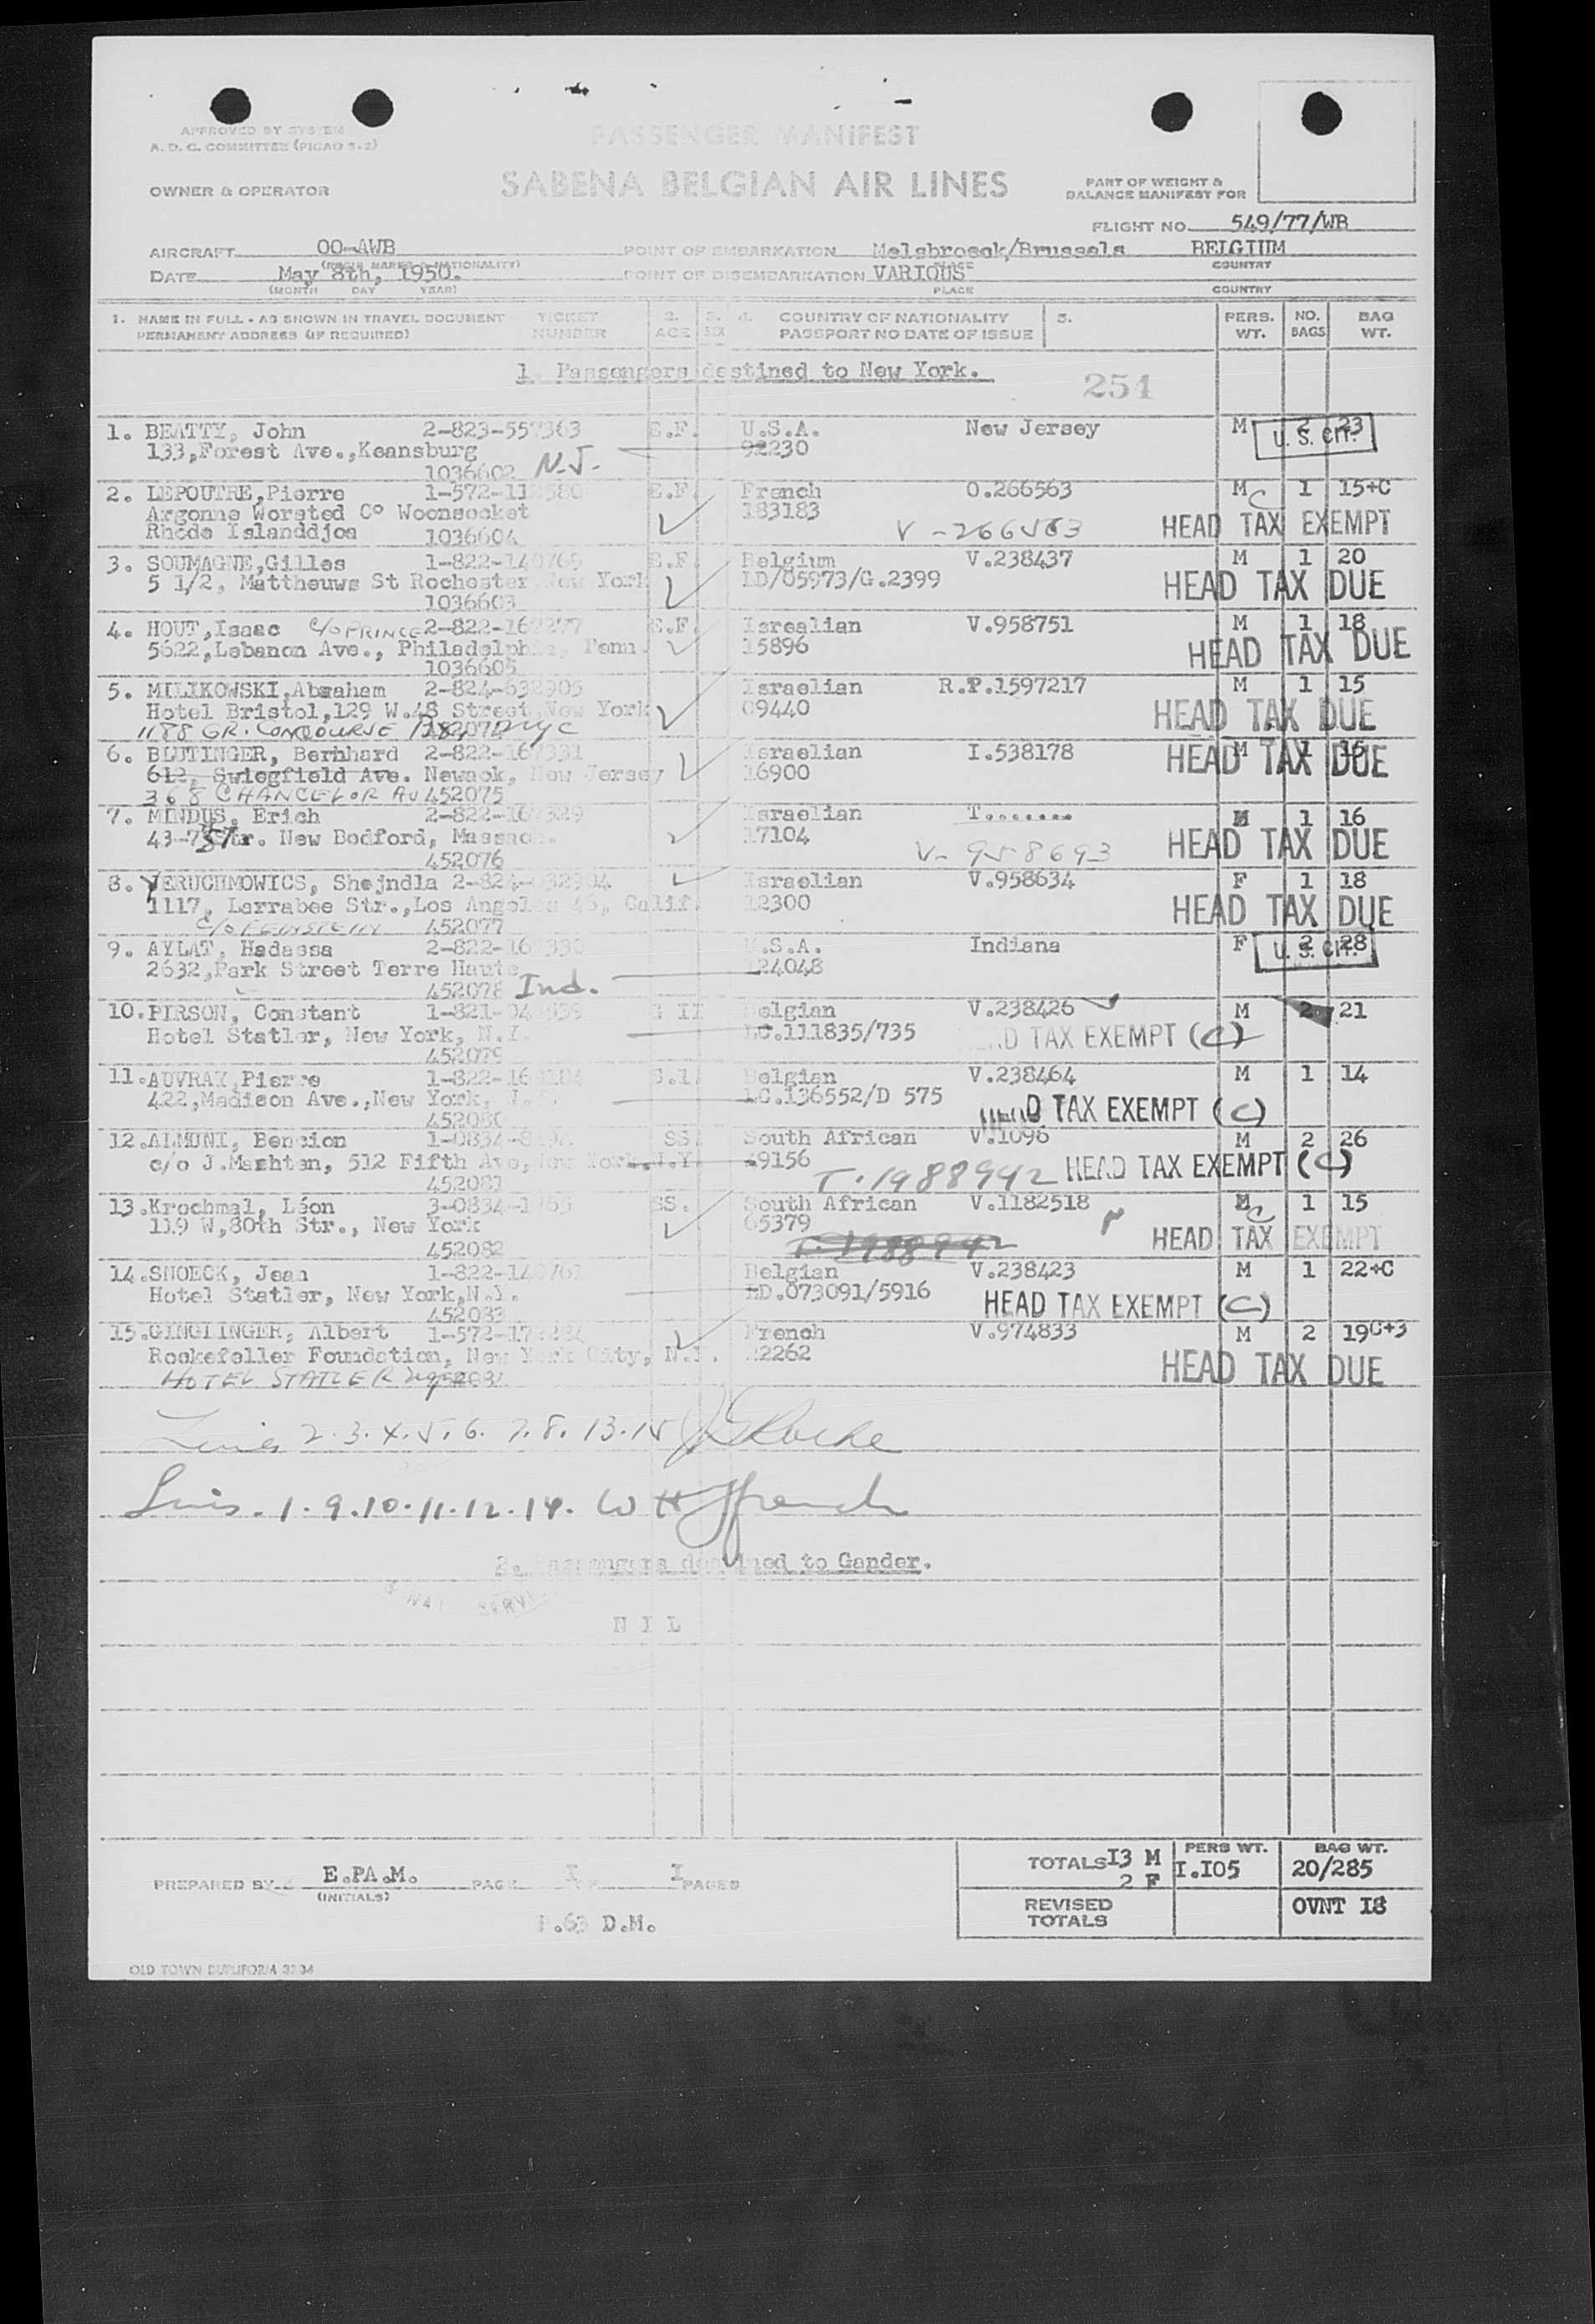 APPROVED BY SYSTEM
A. D. C. COMMITTEE (PICAO 5-2)
PASSENGER MANIFEST
OWNER & OPERATOR
SABENA BELGIAN AIR LINES
PART OF WEIGHT &
BALANCE MANIFEST FOR
FLIGHT NO. 549/77/WB
AIRCRAFT OO-AWB POINT OF EMBARKATION Melsbroeck/Brussels BELGIUM
(REGIS MARKS & NATIONALITY) PLACE COUNTRY
DATE May 8th, 1950. POINT OF DISEMBARKATION VARIOUS
(MONTH DAY YEAR) PLACE COUNTRY
1. NAME IN FULL - AS SHOWN IN TRAVEL DOCUMENT TICKET 2. 3. 4. COUNTRY OF NATIONALITY 5. PERS. NO. BAG
PERMANENT ADDRESS (IF REQUIRED) NUMBER AGE SEX PASSPORT NO DATE OF ISSUE WT. BAGS WT.
1. Passengers destined to New York.
254
1. BEATTY, John 2-823-557363 E.F. U.S.A. New Jersey M 2 23
133,Forest Ave.,Keansburg 92230 U. S. CIT.
1036602 N.J.
2. LEPOUTRE,Pierre 1-572-11 580 E.F. French O.266563 M C 1 15+C
Argonne Worsted C° Woonsocket 183183
Rhode Islanddjoa 1036604 V-266563 HEAD TAX EXEMPT
3. SOUMAGNE,Gilles 1-822-140769 E.F. Belgium V.238437 M 1 20
5 1/2, Mattheuws St Rochester New York LD/05973/G.2399 HEAD TAX DUE
1036603
4. HOUT,Isaac c/o PRINCE 2-822-16 277 E.F. Isrealian V.958751 M 1 18
5622,Lebanon Ave., Philadelphia, Penn. 15896 HEAD TAX DUE
1036605
5. MILIKOWSKI,Abraham 2-824-632905 Israelian R.P.1597217 M 1 15
Hotel Bristol,129 W.48 Street,New York 09440 HEAD TAX DUE
1188 GR. CONCOURSE NYC
6. BLUTINGER, Bernhard 2-822-16 331 Israelian I.538178 M 1 16
612, Swiegfield Ave. Newaok, New Jersey 16900 HEAD TAX DUE
368 CHANCELOR AV 452075
7. MINDUS, Erich 2-822-16 329 Israelian T........ M 1 16
43-7 Str. New Bedford, Massac . 17104 V-958693 HEAD TAX DUE
452076
8. YERUCHMOWICS, Shejndla 2-824-632904 Israelian V.958634 F 1 18
1117, Larrabee Str.,Los Angeles 46, Calif. 12300 HEAD TAX DUE
c/o FEINSTEIN 452077
9. AYLAT, Hadassa 2-822-16 330 U.S.A. Indiana F 2 28
2632,Park Street Terre Haute 124048 U. S. CIT.
452078 Ind.
10.PIRSON, Constant 1-821-04 639 G II Belgian V.238426 M 2 21
Hotel Statler, New York, N.Y. LC.111835/735 TAX EXEMPT (C)
452079
11.AUVRAY,Pierre 1-822-16 184 S.1. Belgian V.238464 M 1 14
422,Madison Ave.,New York, N.Y. LC.136552/D 575 HEAD TAX EXEMPT (C)
452080
12.ALMUNI, Bencion 1-0834- SS. South African V.1096 M 2 26
c/o J.Mashten, 512 Fifth Ave,New York,N.Y. 49156 T.1988942 HEAD TAX EXEMPT (C)
452081
13.Krochmal, Léon 3-0834-1 SS. South African V.1182518 M C 1 15
119 W,80th Str., New York 65379 HEAD TAX EXEMPT
452082 T.1988942
14.SNOECK, Jean 1-822-140761 Belgian V.238423 M 1 22+C
Hotel Statler, New York,N.Y. LD.073091/5916 HEAD TAX EXEMPT (C)
452083
15.GINGLINGER, Albert 1-572-17 French V.974833 M 2 19C+3
Rockefeller Foundation, New York City, N.Y. 22262 HEAD TAX DUE
HOTEL STATLER
2.3.4.5.6.7.8.13.15
1.9.10.11.12.14. W H Ffrench
2. Passengers destined to Gander.
N I L
TOTALS 13 M PERS WT. BAG WT.
2 F I.I05 20/285
PREPARED BY E.PA.M. PAGE I OF I PAGES
(INITIALS)
REVISED TOTALS OVNT I8
P.63 D.M.
OLD TOWN DUPLIFORM 3304